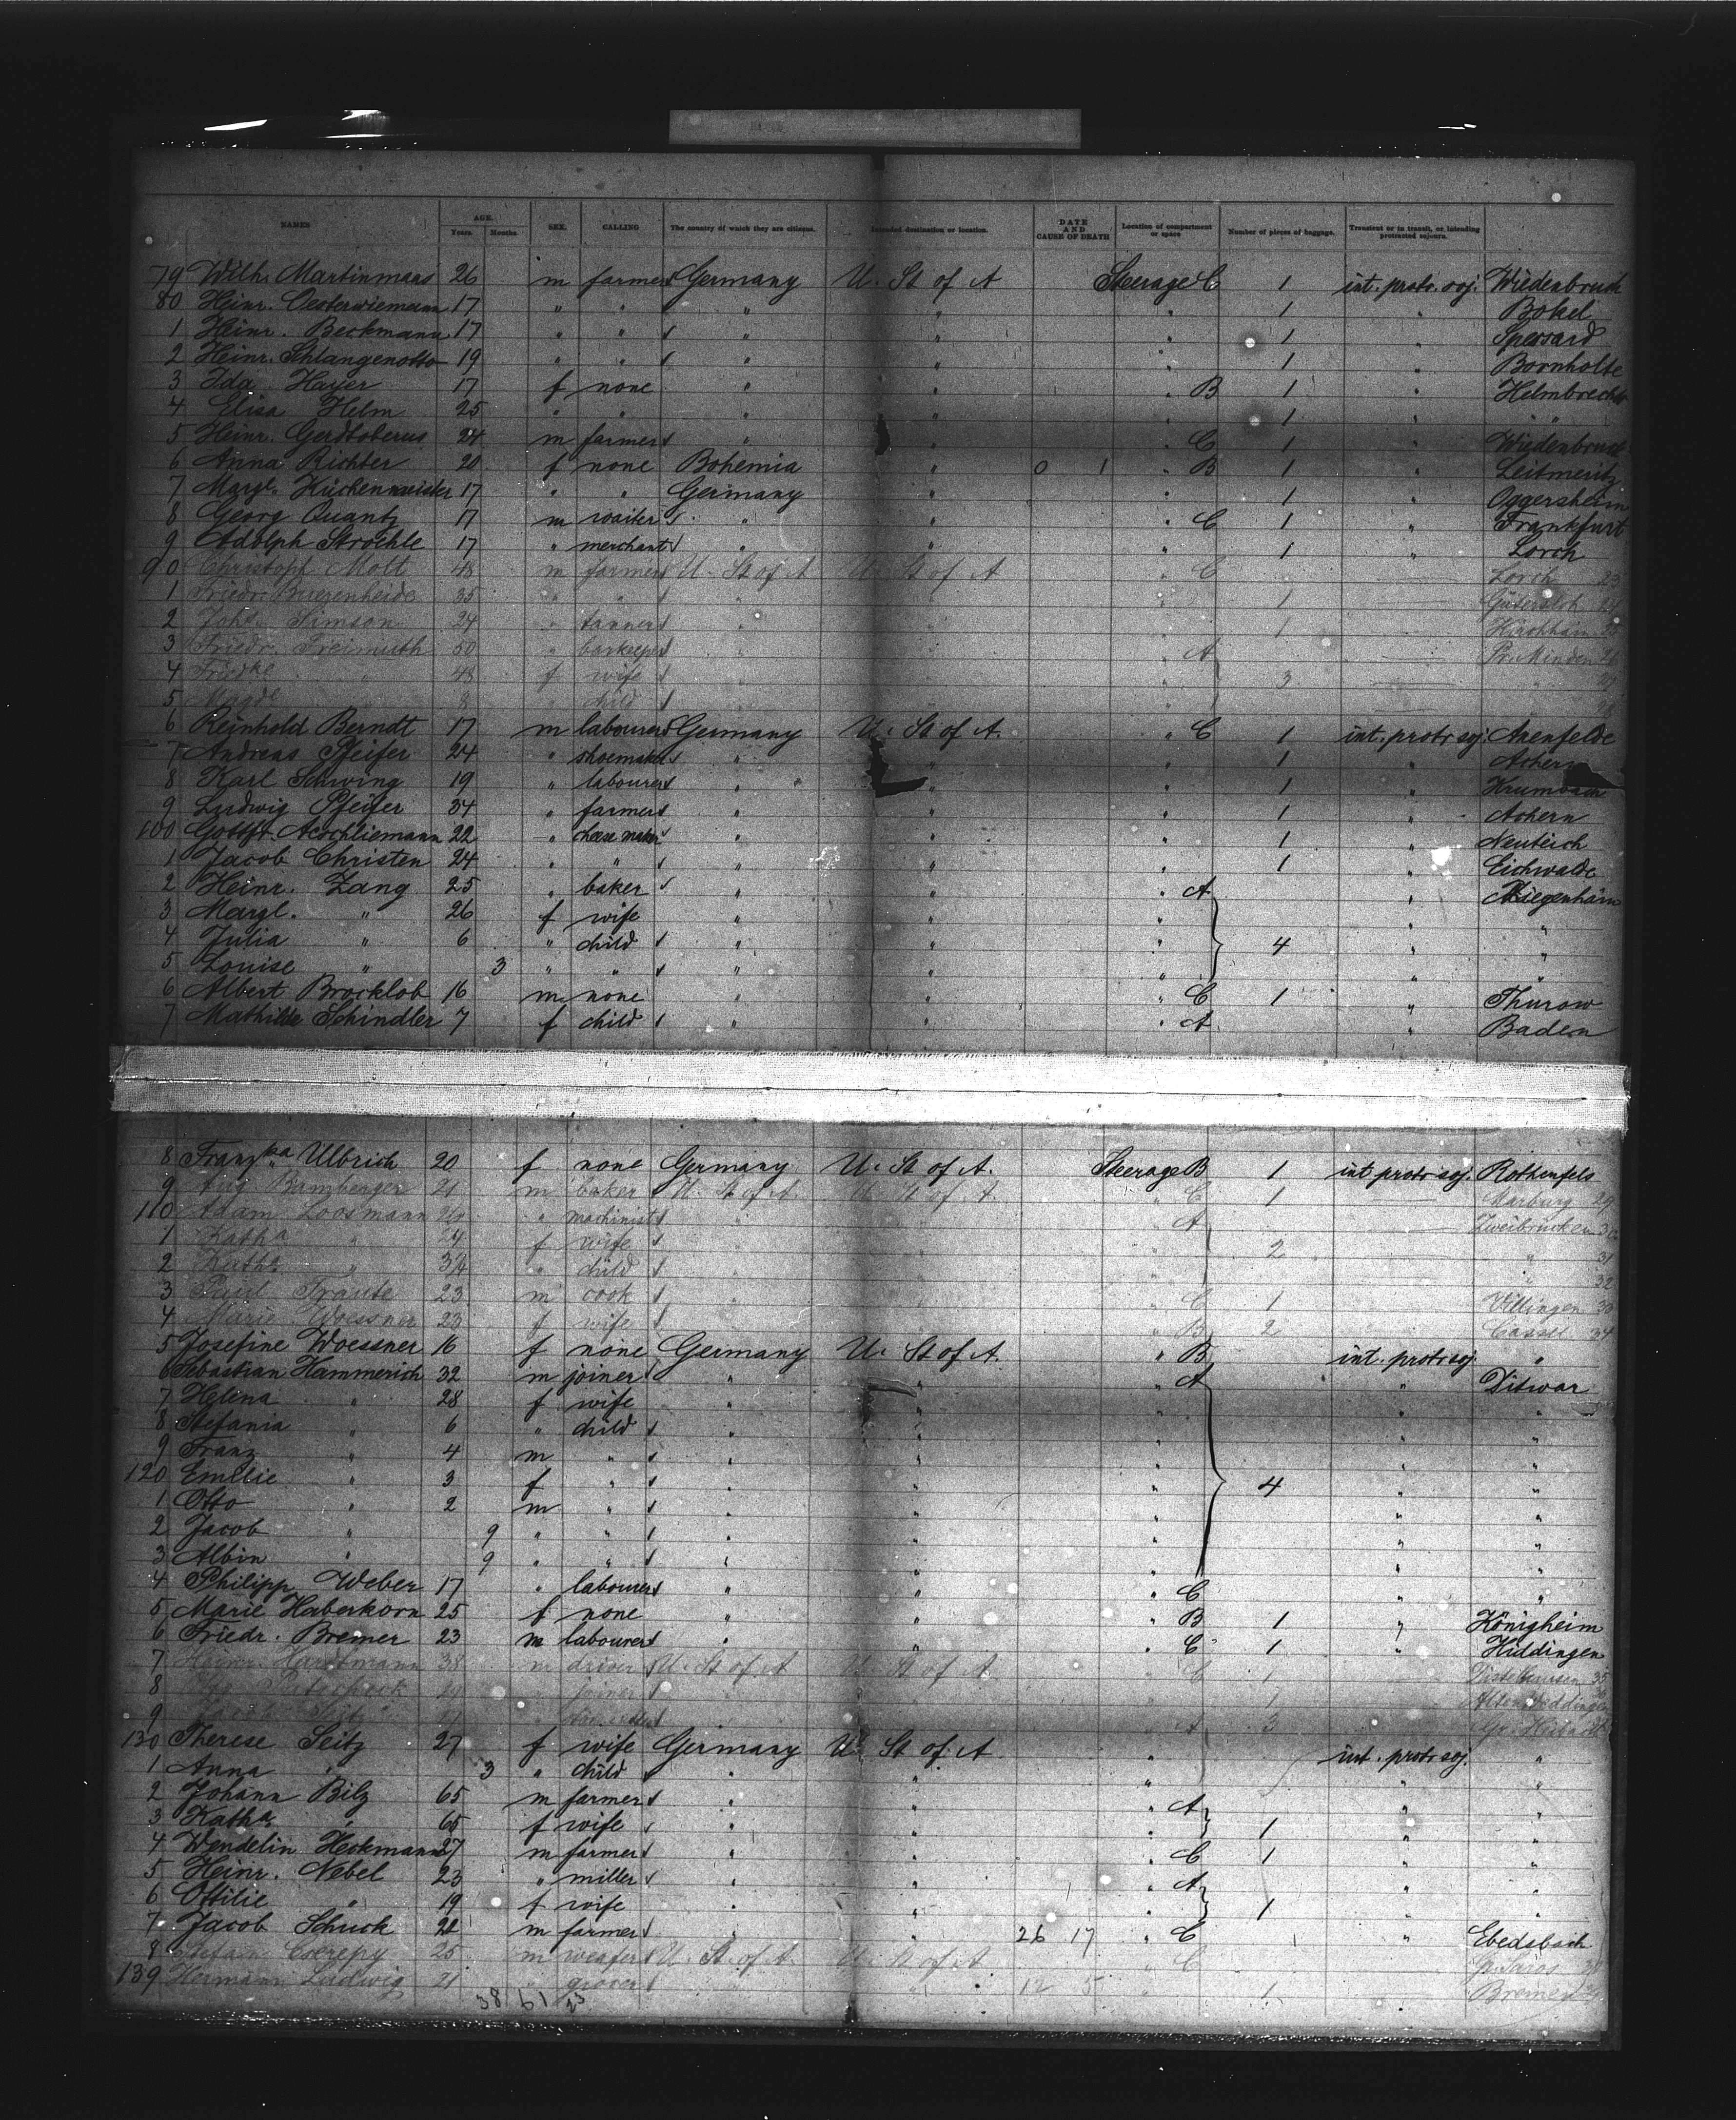 NAMES AGE. Years. Months SEX. CALLING The country of which they are citizens. Intended destination or location. DATE AND CAUSE OF DEATH Location of compartment or space Number of pieces of baggage. Transient or in transit, or, intending protracted sojourn.
79 Wilh. Martinmaas 26 m farmer Germany U. St of A Steerage C 1 int. protr. soj. Wiedenbruck
80 Heinr. Oesterwiemann 17 " " " " " 1 " Bokel
1 Heinr. Beckmann 17 " " " " " 1 "
2 Heinr. Schlangenotto 19 " " " " " 1 " Bornholte
3 Ida Hayer 17 f none " " " B 1 " Helmbrechts
4 Elisa Helm 25 " " " " " 1 " "
5 Heinr. 24 m farmer " " " C 1 " Wiedenbruck
6 Anna Richter 20 f none Bohemia " 0 1 " B 1 " Leitmeritz
7 Margt. Küchenmeister 17 " " Germany " " 1 " Oggersheim
8 Georg Quantz 17 m waiter " " " C 1 " Frankfurt
9 Adolph Stroehle 17 " merchant " " " 1 " Lorch
90 Christopf Molt 48 m farmer U. St of A U. St of A " C Lorch 23
1 Friedr. 35 " " " " " 1 Gütersloh
2 Joh. Simson 24 " tanner " " " 1
3 Friedr. Freimuth 50 " barkeeper " " " A Pr. Minden
4 " 48 f wife " " " 3 "
5 Magd. " 8 " child " " " "
6 Reinhold Berndt 17 m labourer Germany U. St of A. " C 1 int. protr soj. Arenfelde
7 Andreas Pfeifer 24 " shoemaker " " " 1 " Achern
8 Karl Schwing 19 " labourer " " " 1 " Krumbach
9 Ludwig Pfeifer 34 " farmer " " " 1 " Achern
100 Gottfr. Aeschliemann 22 " cheese maker " " " 1 " Neuteich
1 Jacob Christen 24 " " " " " 1 " Eichwalde
2 Heinr. Zang 25 " baker " " " A "
3 Margt. " 26 f wife " " " " "
4 Julia " 6 " child " " " 4 " "
5 Louise " 3 " " " " " " "
6 Albert Brocklob 16 m none " " " C 1 " Thurow
7 Mathilde Schindler 7 f child " " " A " Baden
8 Franzka Ulbrich 20 f none Germany U. St of A. Steerage B 1 int protr soj. Rothenfels
9 Aug Bamberger 21 m baker U. St of A U. St of A. " C 1 Marburg 29
110 Adam Loosmann " machinist " " " A Zweibrücken 30
1 Katha " 24 f wife " " " 2 " 31
2 Katha " " child " " " " 32
3 Paul Traute 23 m cook " " " C 1 Villingen 33
4 Marie Woessner 23 f wife " " " B 2 Cassel 34
5 Josefine Woessner 16 f none Germany U. St of A. " B int. protr soj "
6 Sebastian Hammerich 32 m joiner " " " A " Ditwar
7 Helena " 28 f wife " " " " "
8 Stefania " 6 " child " " " " "
9 Franz " 4 m " " " " " "
120 Emilie " 3 f " " " " 4 " "
1 Otto " 2 m " " " " " "
2 Jacob " 9 " " " " " " "
3 Albin " 9 " " " " " " "
4 Philipp Weber 17 " labourer " " " C " "
5 Marie Haberkorn 25 f none " " " B 1 " Königheim
6 Friedr. Bremer 23 m labourer " " " C 1 " Hiddingen
7 Hartmann 38 m driver U. St of A U. St of A " C 1 35
8 29 " joiner " " " 1
9 " " " A 3
130 Therese Seitz 27 f wife Germany U. St of A " int. protr soj. "
1 Anna " 3 " child " " " " "
2 Johann Bilz 65 m farmer " " " A " "
3 Katha " 65 f wife " " " 1 " "
4 Wendelin Heckmann 27 m farmer " " " C 1 " "
5 Heinr. Nebel 23 " miller " " " A " "
6 Ottilie " 19 f wife " " " 1 " "
7 Jacob Schuck 21 m farmer " " 26 17 " C 1 " Ebedsbach
8 Stefan 25 m U. St of A. U. St of A " C
139 Hermann Ludwig 21 " grocer " " 12 5 " 1 Bremen
38 61 23